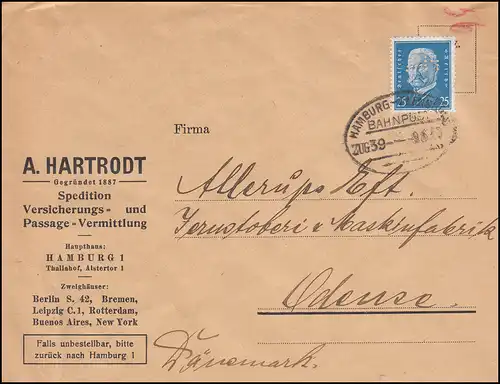 Deutsches Reich
25 25
HAMBURG-
BAHNPOST
ZUG 39
Firma
A. HARTRODT
Gegründet 1887
Spedition
Versicherungs- und
Passage-Vermittlung
Haupthaus:
HAMBURG 1
Thaliahof, Alstertor 1
Zweighäuser:
Berlin S. 42, Bremen,
Leipzig C. 1, Rotterdam,
Buenos Aires, New York
Falls unbestellbar, bitte
zurück nach Hamburg 1
Allerups Eft.
Jernstoberi & Maskinfabrik
Odense.
Dänemark.